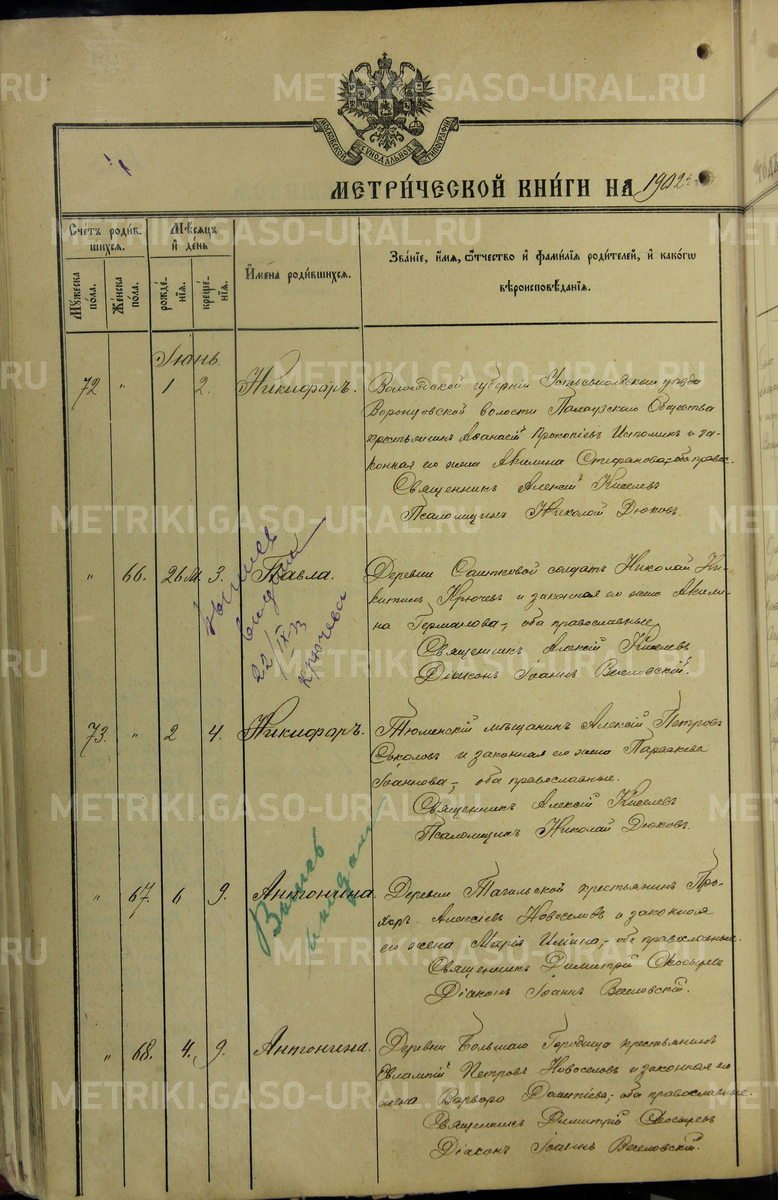 МОСКОВСКОЙ СѴНОДАЛЬНОЙ ТИПОГРАФІИ
МЕТРИ́ЧЕСКОЙ КНИ́ГИ НА 1902 г.
Сче́тъ роди́вшихся.
Мѣ́сяцъ и де́нь
Мꙋ́жеска по́ла.
Же́нска по́ла.
рожде́нія.
креще́нія.
И́мена роди́вшихся.
Зва́ніе, и́мя, ѻ҆́тчество и фами́лія роди́телей, и како́гѡ
вѣроисповѣ́данія.
Іюнь.
72 " 1 2. Никифоръ.
Вологодской губерніи Устьсысольскаго уѣзда
волости Общества
крестьянинъ Аѳанасій Прокопіевъ Истоминъ и за-
конная его жена Акилина Стефанова, оба правос.
Священникъ Алексій Киселевъ
Псаломщикъ Николай Дюковъ.
" 66. 26 М. 3. Павла.
Деревни солдатъ Николай Ни-
китинъ Крючевъ и законная его жена Акили-
на Германова, оба православные
Священникъ Алексій Киселевъ
Діаконъ Іоаннъ Веселовскій.
22/IX-33
73. " 2 4. Никифоръ.
Тюменскій мѣщанинъ Алексій Петровъ
Соколовъ и законная его жена Параскева
Іоаннова, оба православные.
Священникъ Алексій Киселевъ
Псаломщикъ Николай Дюковъ.
" 67. 6 9. Антонина.
Деревни Тагильской крестьянинъ Про-
хоръ Алексіевъ Новоселовъ и законная
его жена Марія Иліина, оба православные.
Священникъ Димитрій
Діаконъ Іоаннъ Веселовскій.
" 68. 4. 9. Антонина.
Деревни Большаго Городища крестьянинъ
Евлампій Петровъ Новоселовъ и законная его
жена Варвара, оба православные.
Священникъ Димитрій
Діаконъ Іоаннъ Веселовскій.
METRIKI.GASO-URAL.RU